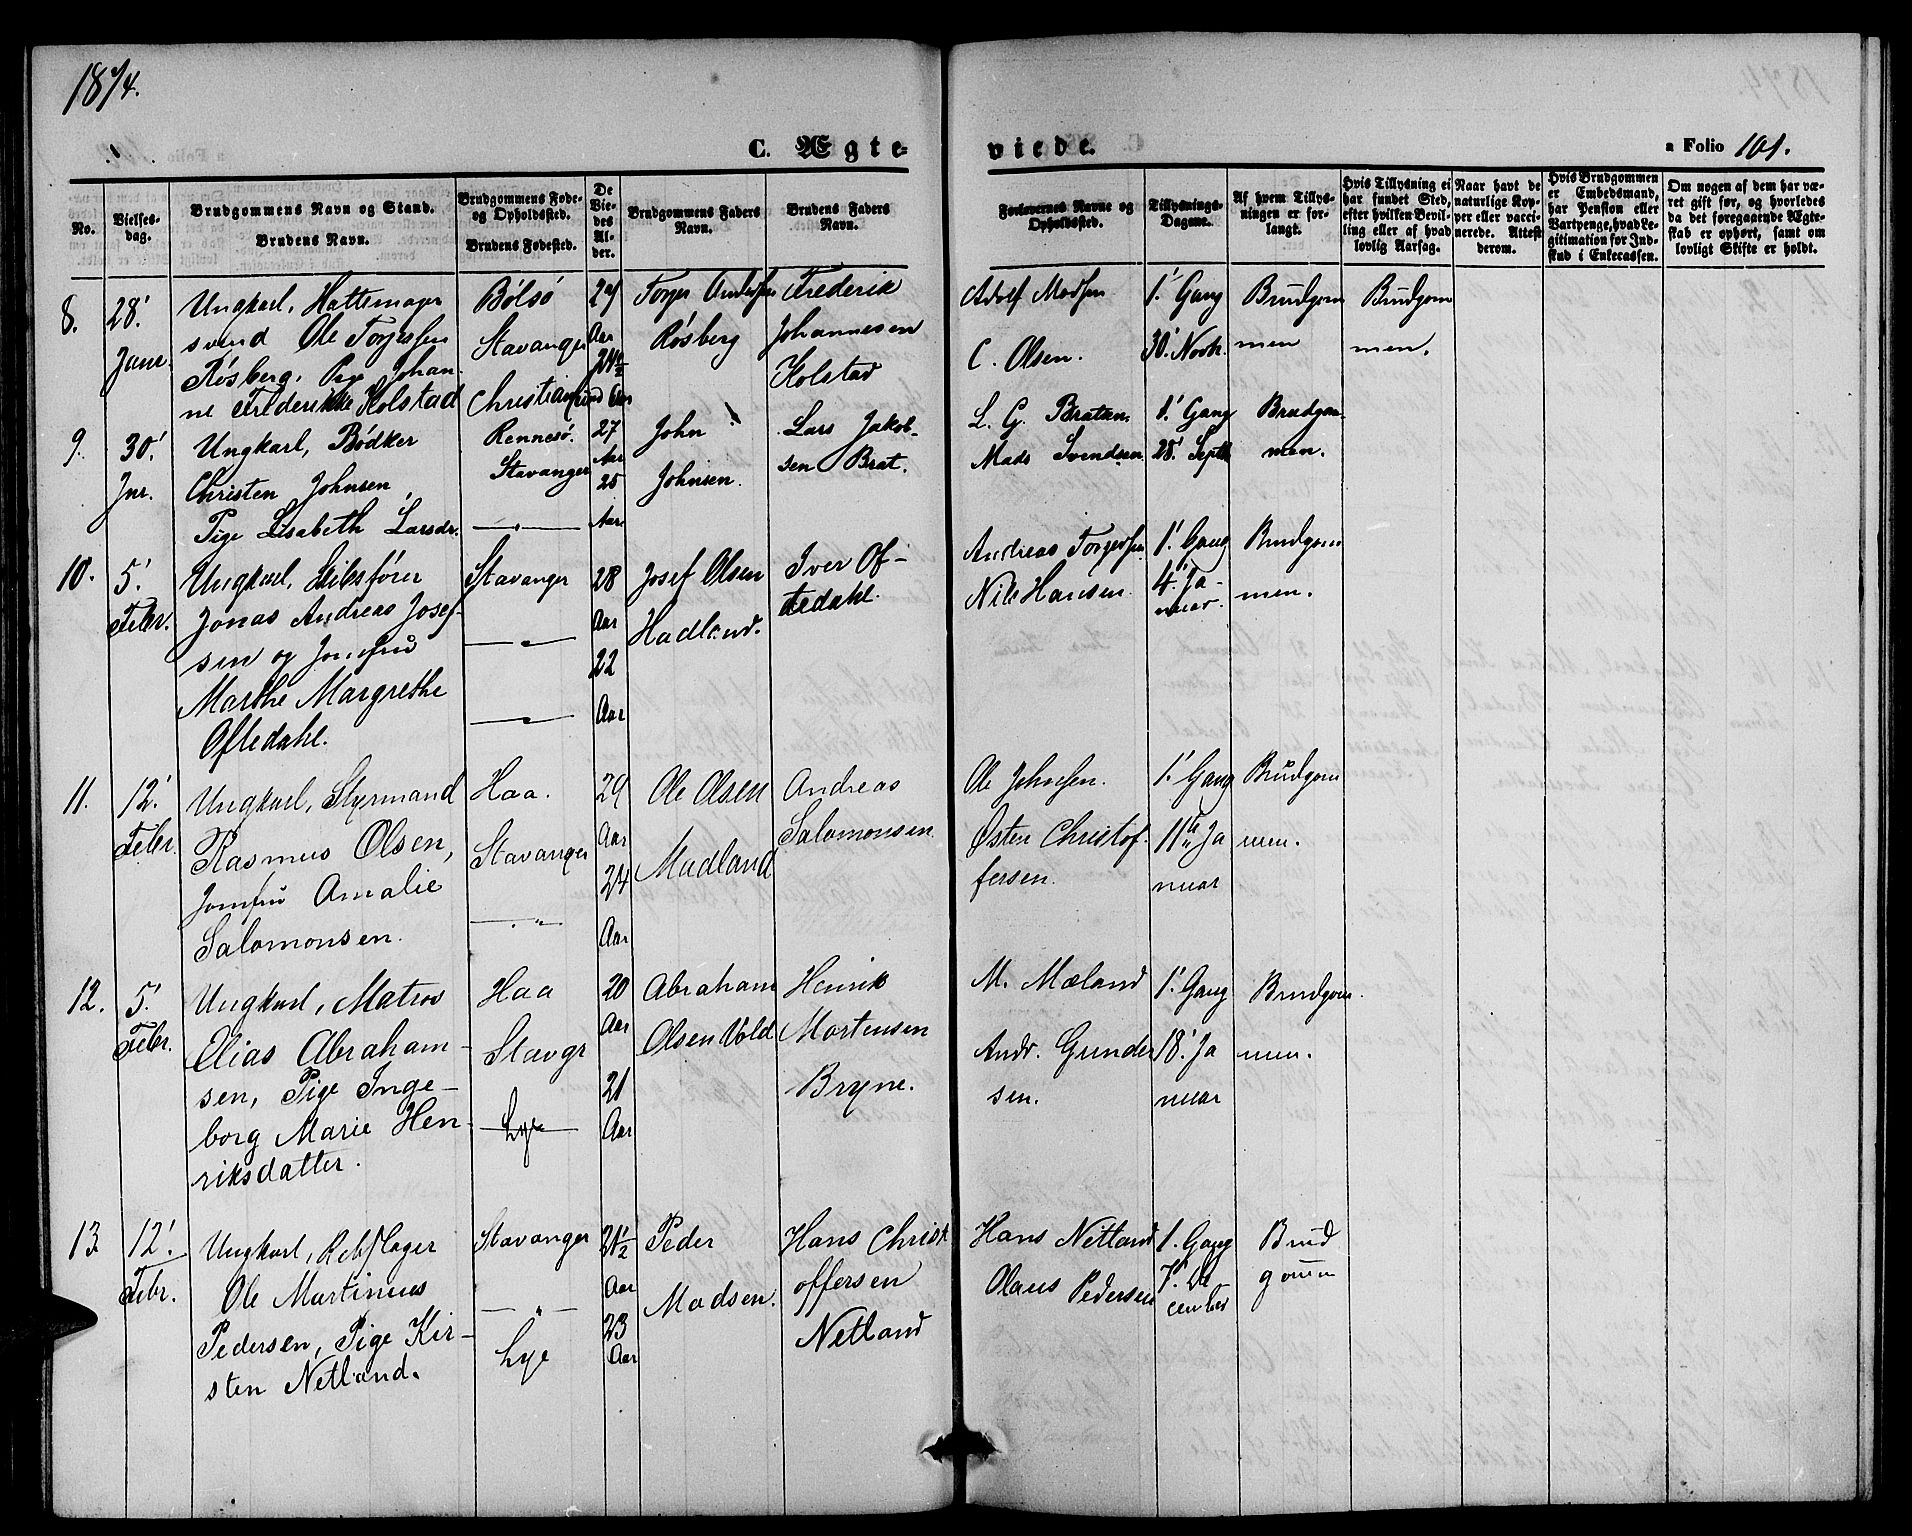 1874.
C. Ægte-
viede.
a Folio 101.
No.
Vielses-
dag.
Brudgommens Navn og Stand.
Brudens Navn.
Brudgommens Føde-
og Opholdssted.
Brudens Fødested.
De
Vie-
des
Al-
der.
Brudgommens Faders
Navn.
Brudens Faders
Navn.
Forlovernes Navne og
Opholdssted.
Tillysnings-
Dagene.
Af hvem Tillys-
ningen er for-
langt.
Hvis Tillysning ei
har fundet Sted,
efter hvilken Bevil-
ling eller af hvad
lovlig Aarsag.
Naar havt de
naturlige Kop-
per eller vacci-
nerede. Attest
derom.
Hvis Brudgommen
er Embedsmand,
har Pension eller
Vartpenge, hvad Le-
gitimation for Ind-
skud i Enkecassen.
Om nogen af dem har væ-
ret gift før, og hvorledes
da det foregaaende Ægte-
skab er ophørt, samt om
lovligt Skifte er holdt.
8.
28'
Janr.
Ungkarl, Hattemager
svend Ole Torgersen
Røsberg. Pige Johan-
ne Frederikke Kolstad
Bølsø
Stavanger
Christiansund
29
Aar
24 1/2
Aar
Torger Andersen
Røsberg
Frederik
Johannesen
Kolstad
Adolf Madsen
C. Olsen.
1' Gang
30' Novb.
Brudgom
men
Brudgom
men.
9.
30'
Jnr.
Ungkarl, Bødker
Christen Johnsen,
Pige Lisabeth Larsdr.
Rennesø.
Stavanger
— " —
27
Aar
25
Aar
John
Johnsen.
Lars Jakob-
sen Brat.
L. G. Bratan.
Mads Svendsen
1' Gang
28' Septb
Brudgom
men.
10.
5'
Febr.
Ungkarl,
Jonas Andreas Josef-
sen og Jomfru
Marthe Margrethe
Oftedahl.
Stavanger
— " —
— " —
28
Aar
22
Aar
Josef Olsen
Hadland.
Iver Of-
tedahl.
Andreas Torgersen
Nils Hansen.
1' Gang
4' Ja-
nuar.
Brudgom
men.
11.
12'
Febr.
Ungkarl, Styrmand
Rasmus Olsen,
Jomfru Amalie
Salomonsen.
Haa.
Stavanger
— " —
29
Aar
24
Aar
Ole Olsen
Madland
Andreas
Salomonsen
Ole Johnsen.
Østen Christof-
fersen.
1' Gang
11te Ja
nuar
Brudgom
men.
12.
5'
Febr.
Ungkarl, Matros
Elias Abraham-
sen, Pige Inge-
borg Marie Hen-
riksdatter.
Haa
Stavgr
Lye
20
Aar
21
Aar
Abraham
Olsen Vold
Henrik
Mortensen
Bryne.
M. Mæland
Andr. Gunder
sen.
1' Gang
18' Ja
nuar
Brudgom
men.
13
12'
Febr.
Ungkarl, Rebslager
Ole Martinius
Pedersen, Pige Kir-
sten Netland.
Stavanger
— " —
Lye
21 1/2
Aar
23
Aar
Peder
Madsen.
Hans Christ
offersen
Netland
Hans Netland
Olaus Pedersen
1. Gang
7' De
cember
Brud
gomm